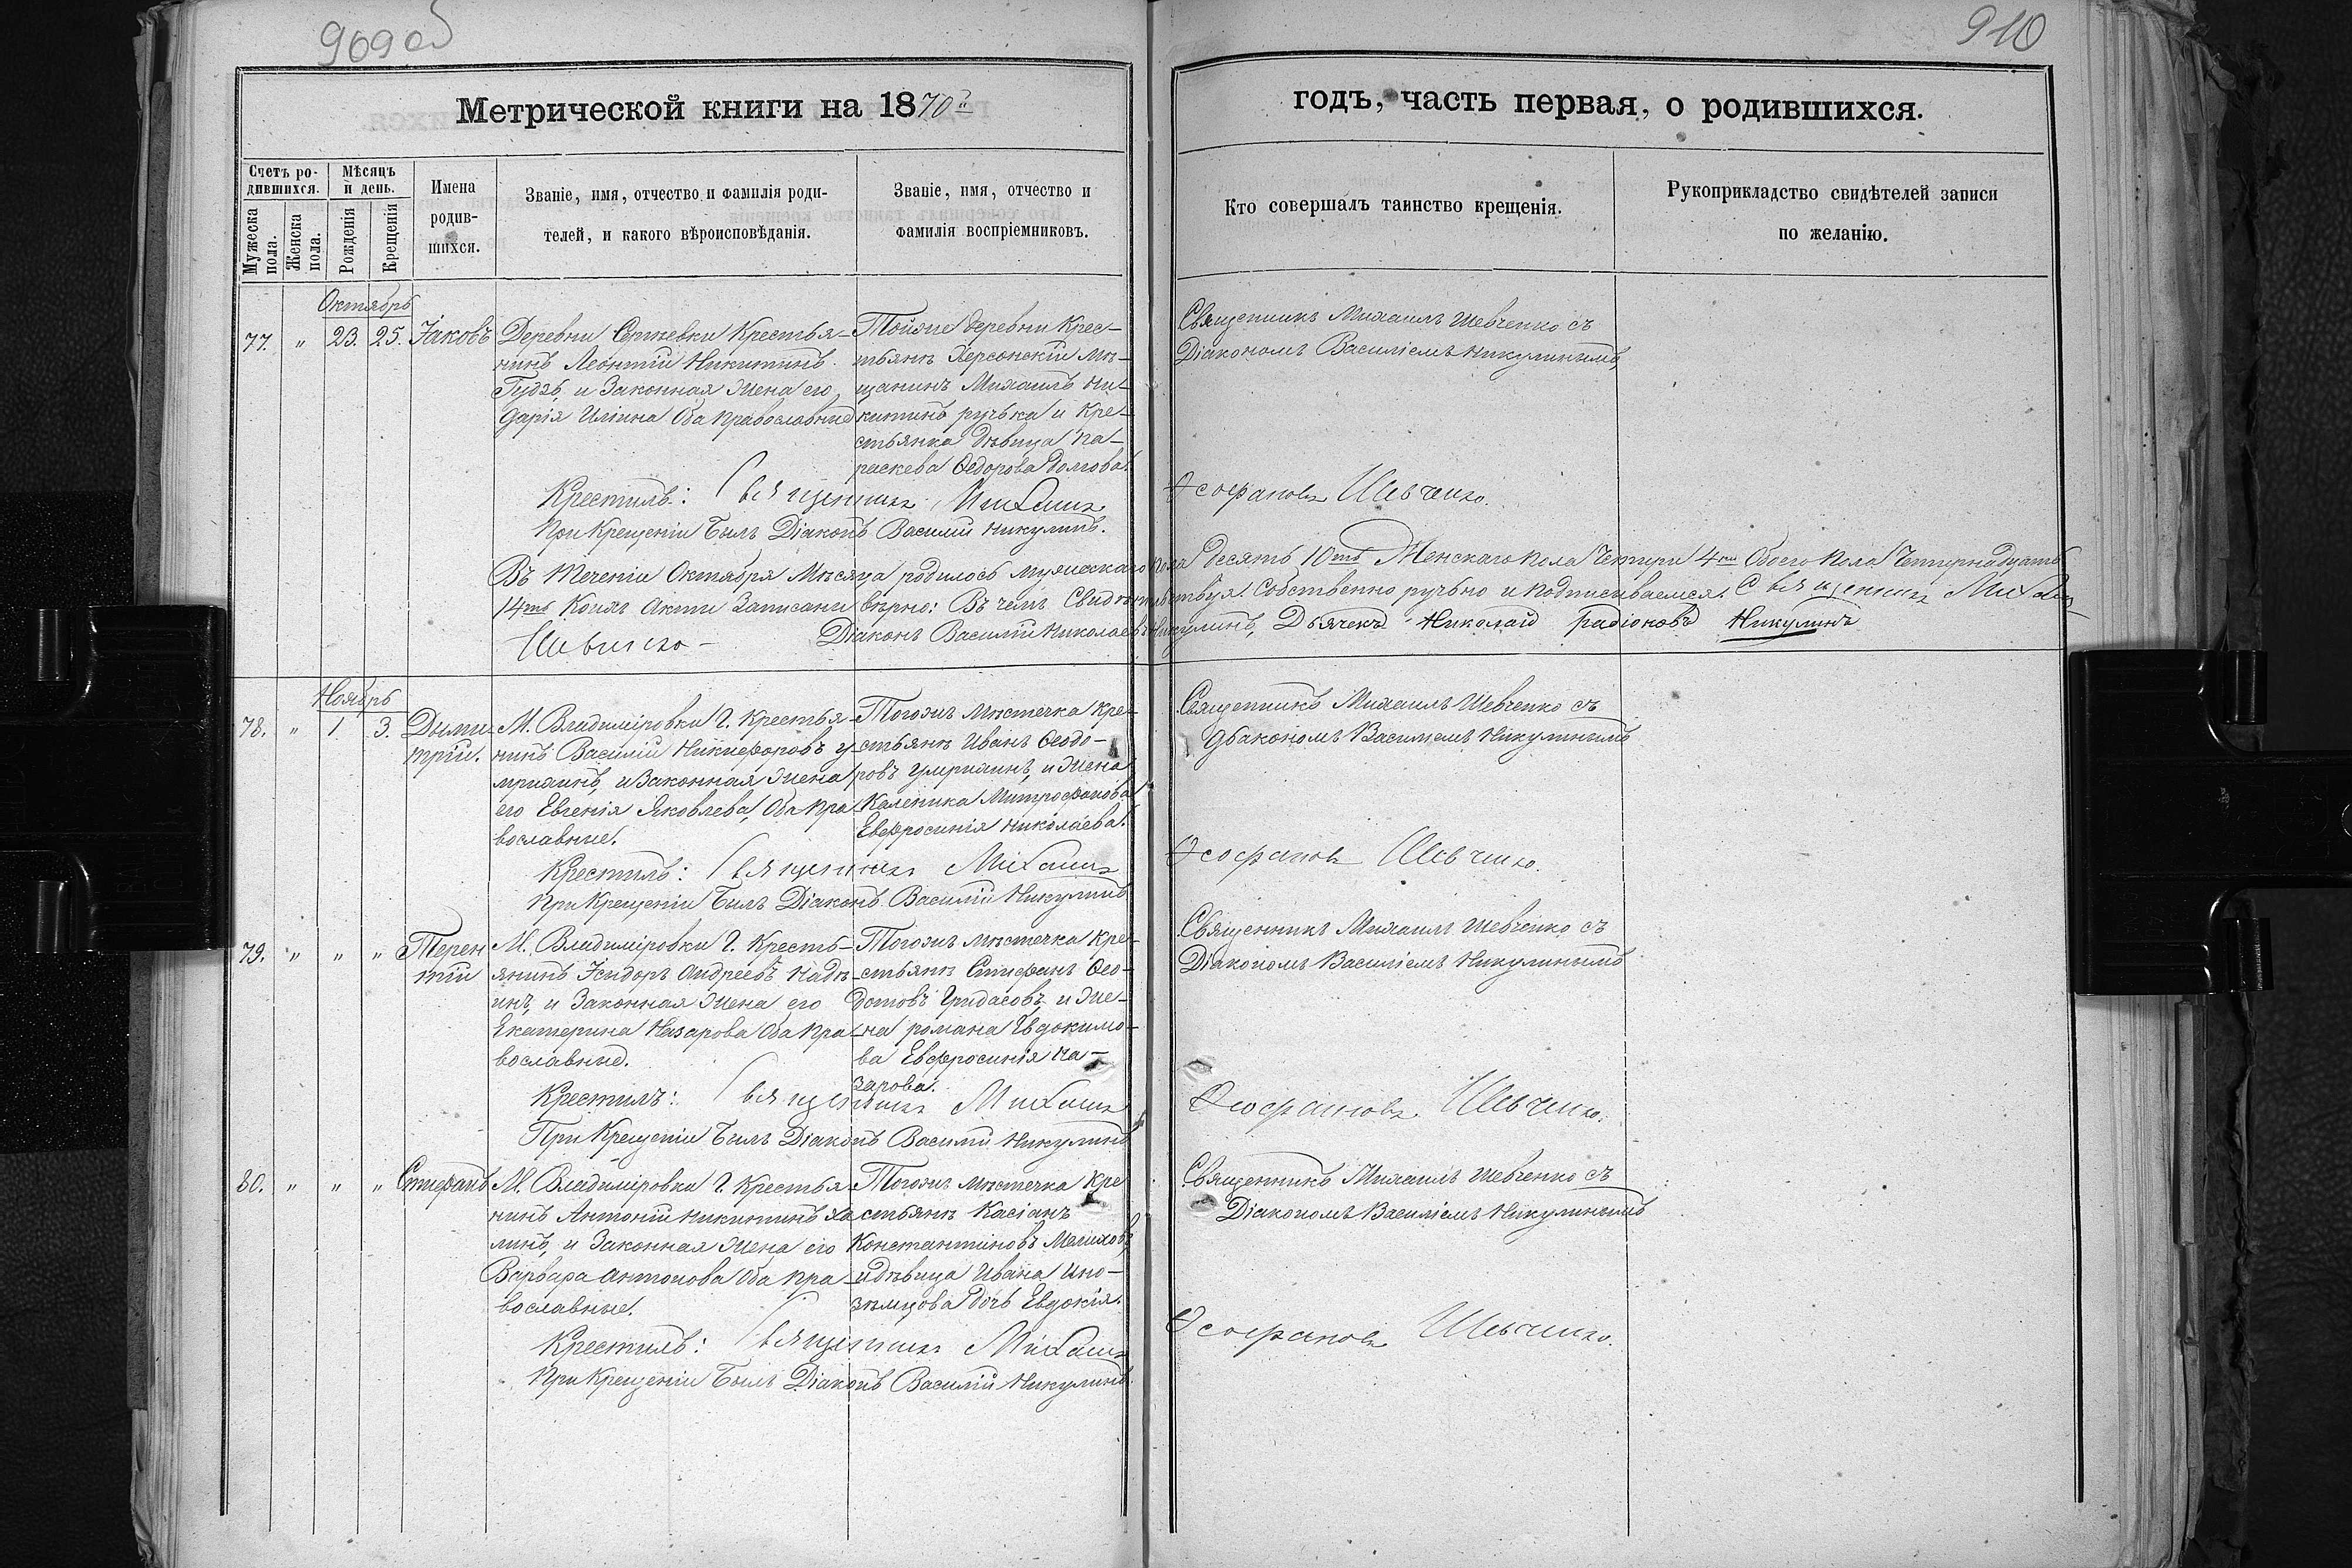 909 об
910
Метрической книги на 1870й
годъ, часть первая, о родившихся.
Счетъ ро-
дившихся.
Мѣсяцъ
и день.
Мужеска
пола.
Женска
пола.
Рожденія
Крещенія
Имена
родив-
шихся.
Званіе, имя, отчество и фамилія роди-
телей, и какого вѣроисповѣданія.
Званіе, имя, отчество и
фамилія воспріемниковъ.
Кто совершалъ таинство крещенія.
Рукоприкладство свидѣтелей записи
по желанію.
Октябрь
77. " 23. 25. Іаковъ
Деревни Крестья-
нинъ Леонтій Никитинъ
Гудзь, и Законная Жена его
Дарія Иліина Оба Православные
Тойже деревни Крес-
тьянъ Херсонскій мѣ-
щанинъ Михаилъ Ни-
китинъ ручька и Кре-
стьянка дѣвица Па-
раскева Ѳедорова Долгова.
Священникъ Михаилъ Шевченко съ
Діакономъ Василіемъ Никулинымъ,
Крестилъ: Священникъ Михаилъ Ѳеофановъ Шевченко.
При Крещеніи былъ Діаконъ Василій Никулинъ.
Въ теченіи Октября Мѣсяца родилось мужескаго пола десять 10ть Женскаго пола Четыри 4ри Обоего пола Четырнадцать
14ть Коихъ Акты Записаны вѣрно: Въ чемъ Свидѣтельствуя Собственно ручьно и подписываемся. Священникъ Михаилъ
Шевченко -
Діаконъ Василій Николаевъ Никулинъ, Дьячекъ Николай радіоновъ Никулинъ
Ноябрь
78. " 1. 3. Дыми
трій.
М. Владиміровки Г. Крестья-
нинъ Василій Никифоровъ у
мрихинъ, и Законная Жена
его Евгенія Яковлева, Оба пра
вославные.
Тогожъ мѣстечка Кре-
стьянъ Иванъ Ѳеодо-
ровъ умрихинъ, и Жена
Каленика Митрофанова
Евфросинія Николаева.
Священникъ Михаилъ Шевченко съ
Дьакономъ Василіемъ Никулинымъ
Крестилъ: Священникъ Михаилъ Ѳеофановъ Шевченко.
При Крещеніи былъ Діаконъ Василій Никулинъ
79. " " " Терен
тій
М. Владиміровки Г. Кресть-
янинъ Исидоръ Андреевъ Надѣ-
инъ, и Законная Жена его
Екатерина Назарова Оба пра
вославные.
Тогожъ мѣстечка Кре-
стьянъ Стефанъ Ѳео-
дотовъ Гридасовъ, и Же-
на романа Евдокимо-
ва Евфросинія На-
зарова.
Священникъ Михаилъ Шевченко съ
Діакономъ Василіемъ Никулинымъ
Крестилъ: Священникъ Михаилъ Ѳеофановъ Шевченко.
При Крещеніи былъ Діаконъ Василій Никулинъ
80. " " " Стефанъ
М. Владиміровки Г. Крестья
нинъ Антоній Никитинъ Ха
линъ, и Законная Жена его
Варвара Антонова Оба пра
вославные.
Тогожъ мѣстечка Кре
стьянъ Касіанъ
Константиновъ Мелиховъ
и дѣвица Ивана Ино-
земцова дочь Евдокія.
Священникъ Михаилъ Шевченко съ
Діакономъ Василіемъ Никулинымъ
Крестилъ: Священникъ Михаилъ Ѳеофановъ Шевченко.
При Крещеніи былъ Діаконъ Василій Никулинъ.